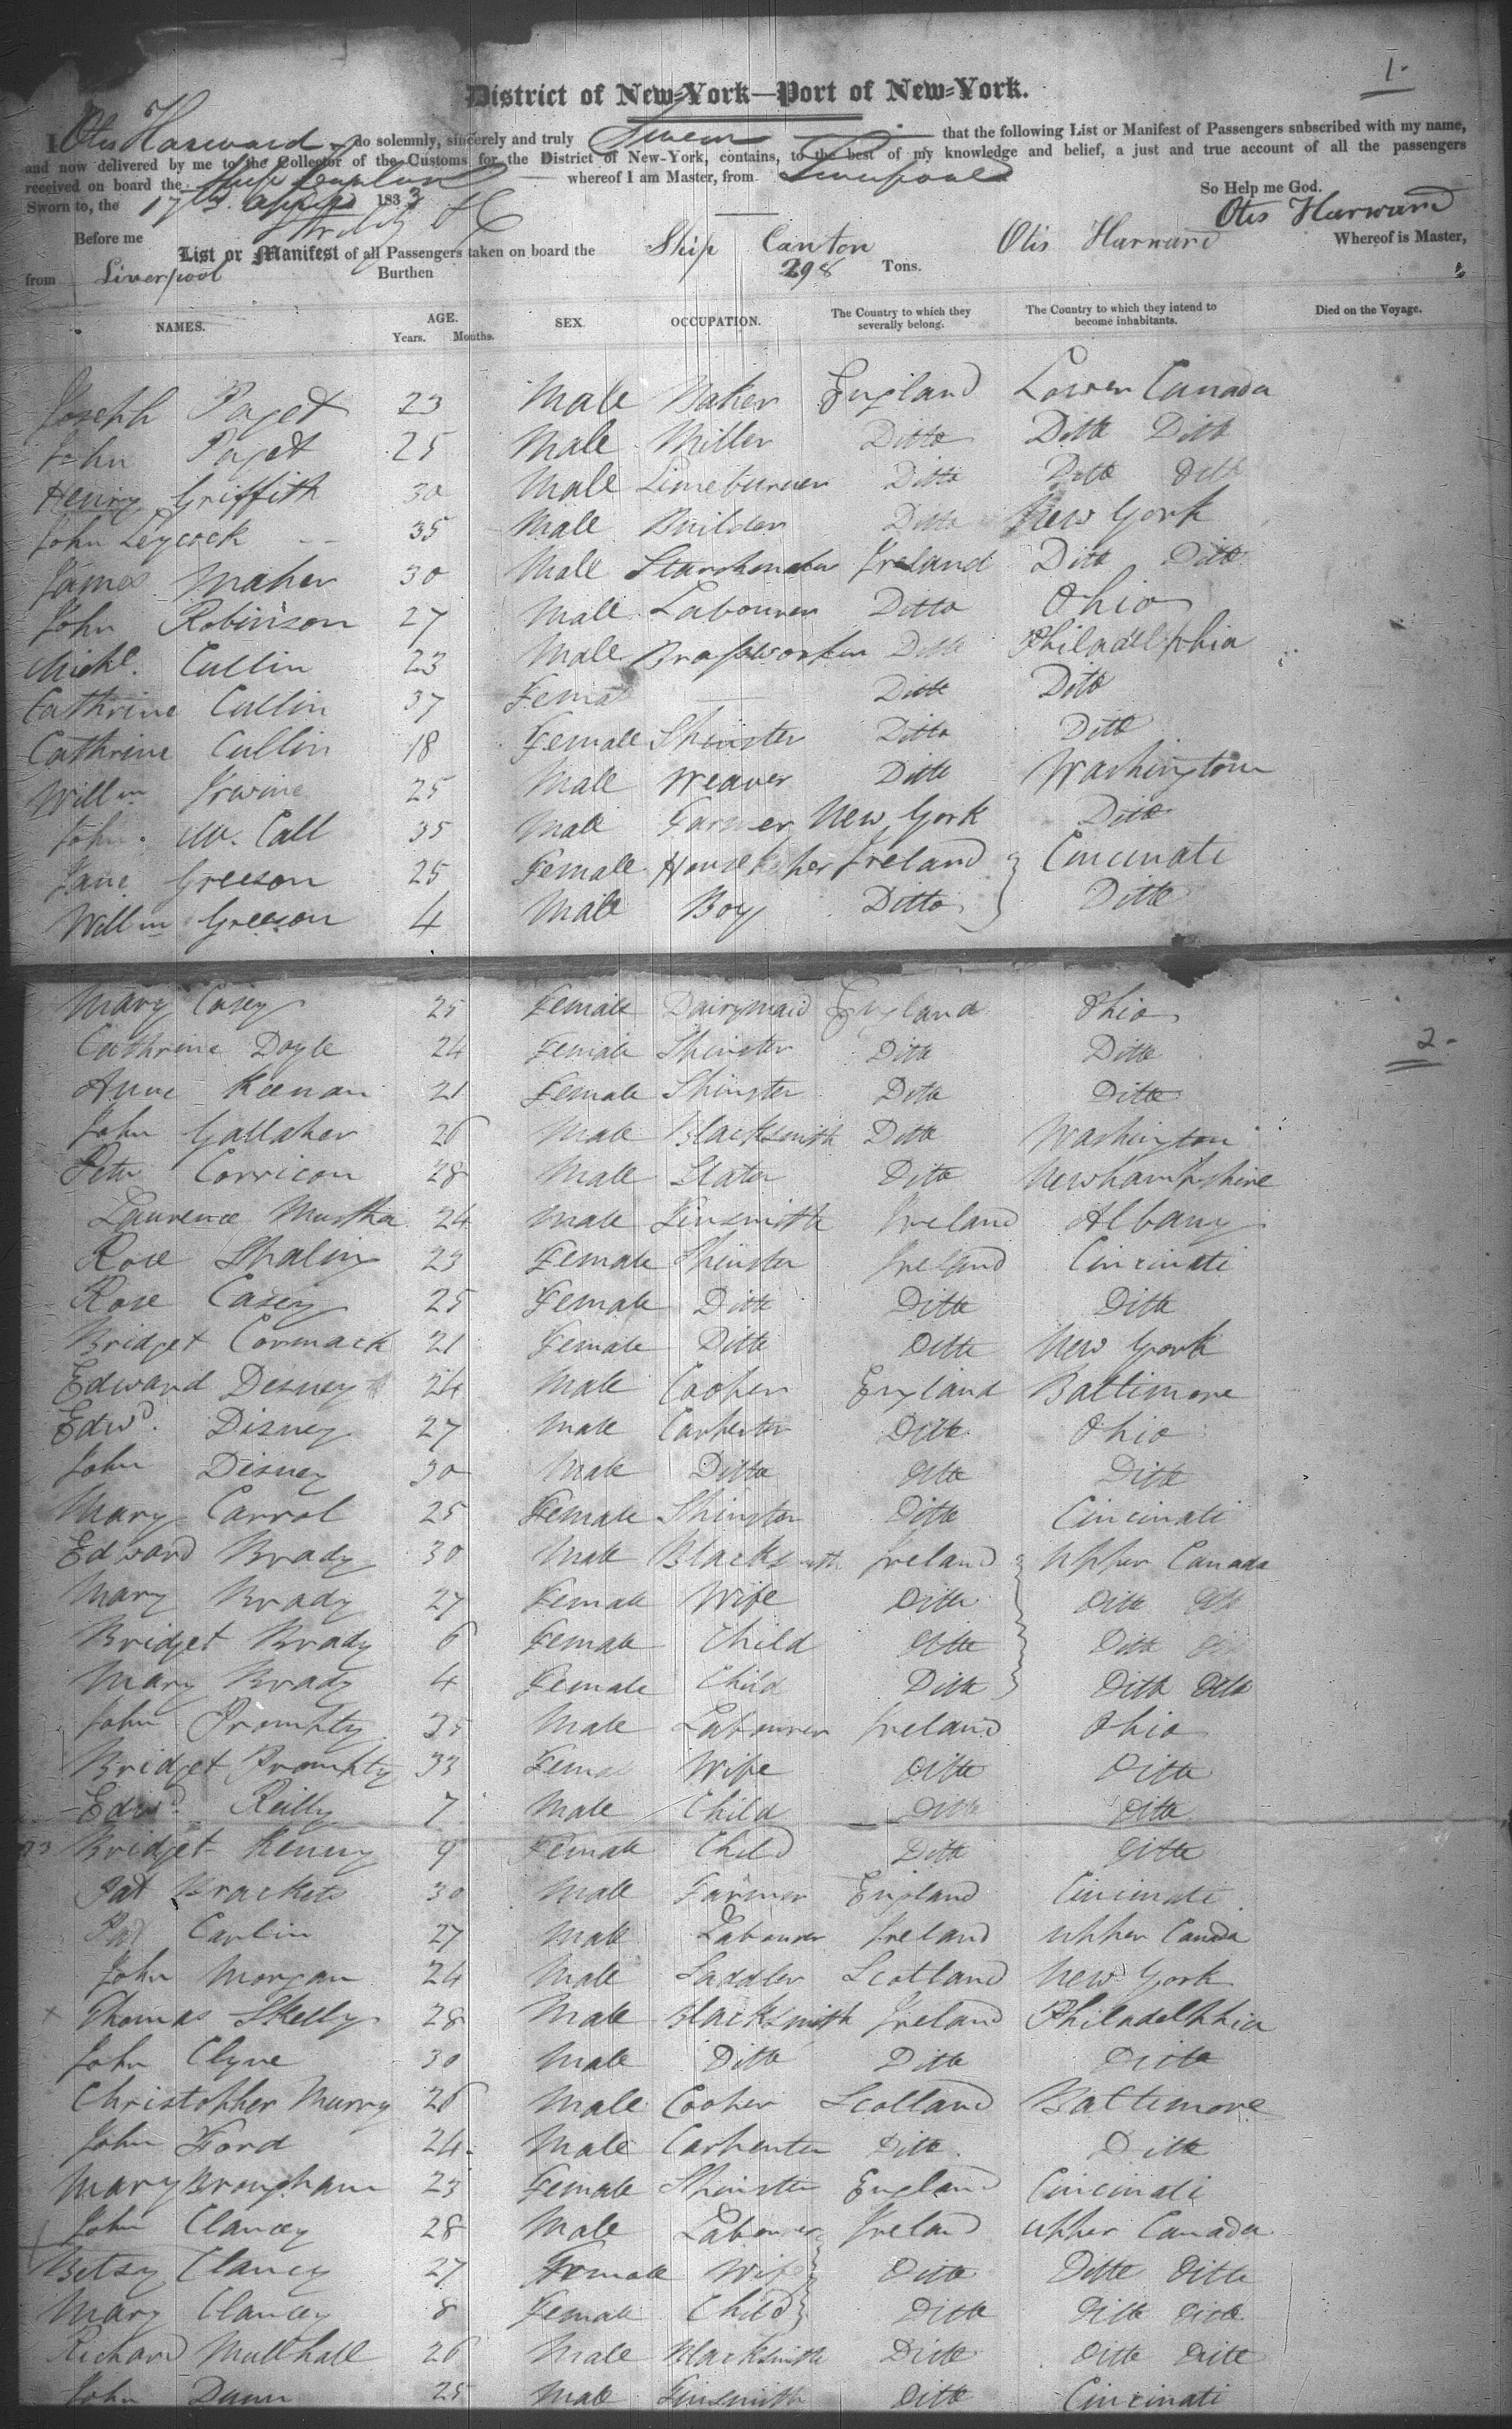 1.
District of New-York—Port of New-York.
I Otis Harward do solemnly, sincerely and truly Swear that the following List or Manifest of Passengers subscribed with my name,
and now delivered by me to the Collector of the Customs for the District of New-York, contains, to the best of my knowledge and belief, a just and true account of all the passengers
received on board the Ship Canton whereof I am Master, from Liverpool
So Help me God.
Sworn to, the 17th April 1833
Otis Harward
Before me
List or Manifest of all Passengers taken on board the Ship Canton Otis Harward Whereof is Master,
from Liverpool Burthen 298 Tons.
NAMES. AGE. Years. Months. SEX. OCCUPATION. The Country to which they severally belong. The Country to which they intend to become inhabitants. Died on the Voyage.
Joseph Paget 23 Male Baker England Lower Canada
John Paget 25 Male Miller Ditto Ditto Ditto
Henry Griffith 30 Male Limeburner Ditto Ditto Ditto
John Leycock 35 Male Builder Ditto New York
James Maher 30 Male Starchmaker Ireland Ditto Ditto
John Robinson 27 Male Labourer Ditto Ohio
Michl. Cullin 23 Male Brassworker Ditto Philadelphia
Cathrine Cullin 37 Female Ditto Ditto
Cathrine Cullin 18 Female Spinster Ditto Ditto
Willm Irwine 25 Male Weaver Ditto Washington
John Mc. Call 35 Male Farmer New York Ditto
Jane Greeson 25 Female Ireland Cincinati
Willm Greeson 4 Male Boy Ditto Ditto
Mary Casey 25 Female Dairymaid England Ohio
2-
Cathrine Doyle 24 Female Spinster Ditto Ditto
Anne Keenan 21 Female Spinster Ditto Ditto
John Gallaher 26 Male Blacksmith Ditto Washington
Peter Corricon 28 Male Slater Ditto Newhampshire
Laurence Murtha 24 Male Tinsmith Ireland Albany
Rose Shaling 23 Female Spinster Ireland Cincinati
Rose Casey 25 Female Ditto Ditto Ditto
Bridget Cormack 21 Female Ditto Ditto New York
Edward Desney 24 Male Cooper England Baltimore
Edwd. Disney 27 Male Carpenter Ditto Ohio
John Disney 30 Male Ditto Ditto Ditto
Mary Carrol 25 Female Spinster Ditto Cincinati
Edward Brady 30 Male Blacksmith Ireland Upper Canada
Mary Brady 27 Female Wife Ditto Ditto Ditto
Bridget Brady 6 Female Child Ditto Ditto Ditto
Mary Brady 4 Female Child Ditto Ditto Ditto
John Prompty 35 Male Labourer Ireland Ohio
Bridget Prompty 33 Female Wife Ditto Ditto
Edwd. Reilly 7 Male Child Ditto Ditto
Bridget Kenny 9 Female Child Ditto Ditto
Pat Brackets 30 Male Farmer England Cincinati
Pat Carlin 27 Male Labourer Ireland Upper Canada
John Morgan 24 Male Saddler Scotland New York
Thomas Skelly 28 Male Blacksmith Ireland Philadelphia
John Clyne 30 Male Ditto Ditto Ditto
Christopher Murry 26 Male Cooper Scotland Baltimore
John Ford 24 Male Carpenter Ditto Ditto
Mary Brougham 23 Female Spinster England Cincinati
John Clancey 28 Male Labourer Ireland Upper Canada
Betsy Clancy 27 Female Wife Ditto Ditto Ditto
Mary Clancey 8 Female Child Ditto Ditto Ditto
Richard Mullhall 26 Male Blacksmith Ditto Ditto Ditto
John Dunn 25 Male Tinsmith Ditto Cincinati